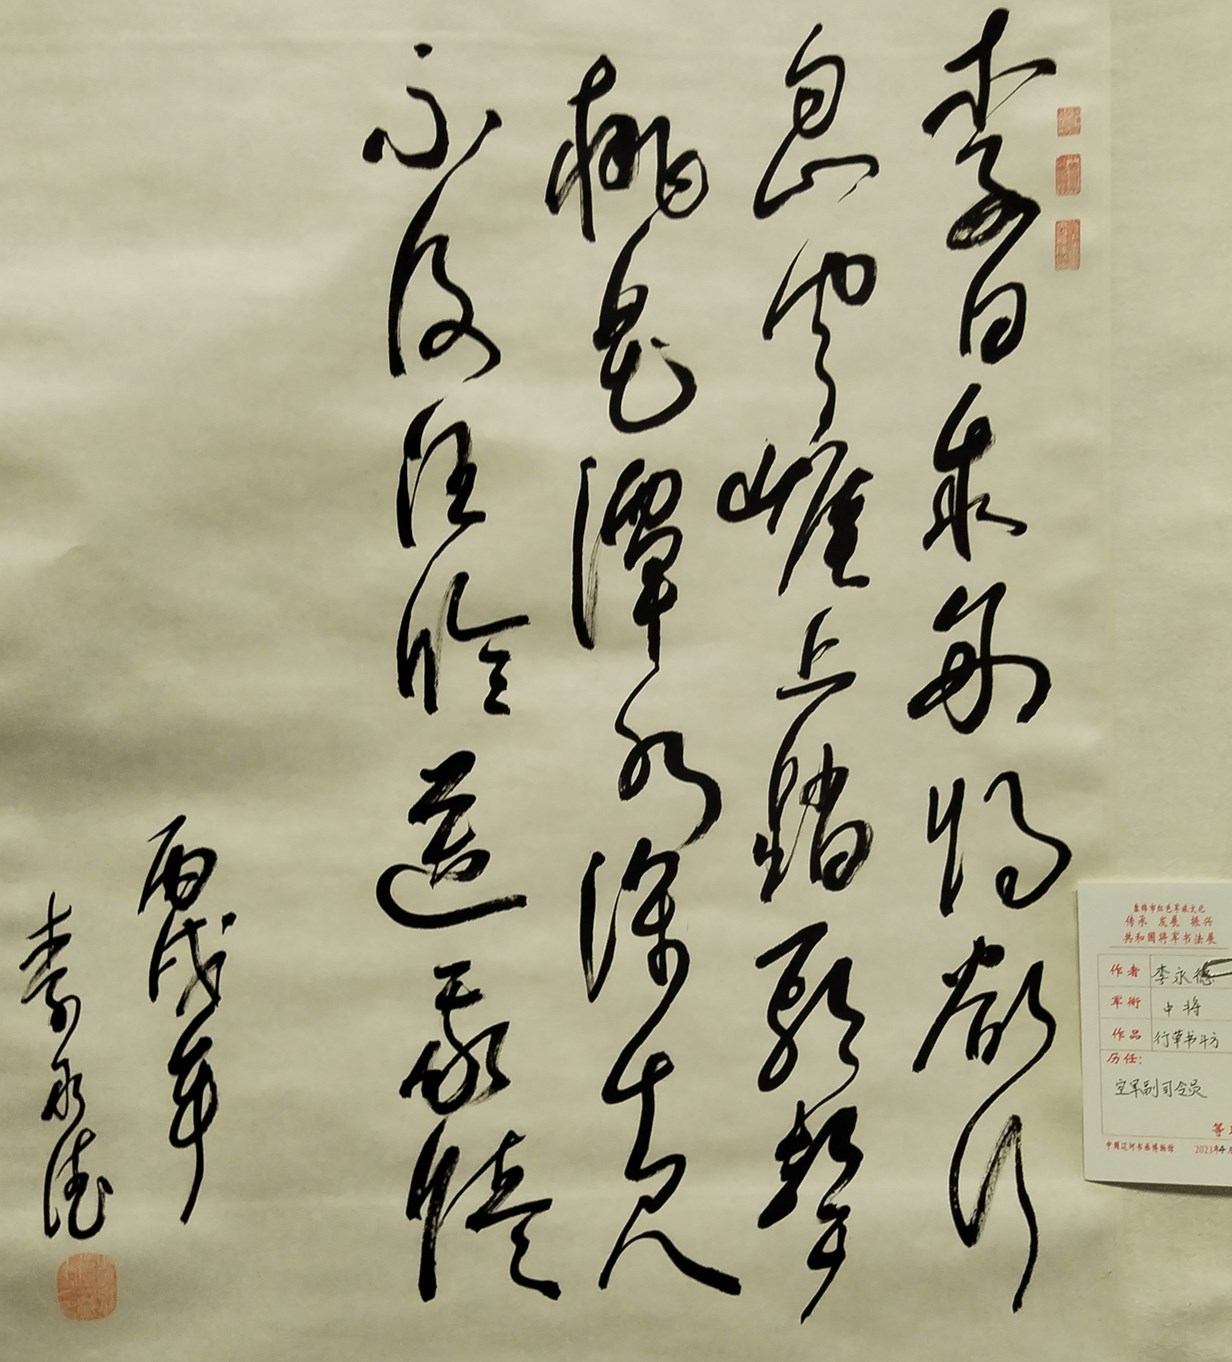 李白乘舟将欲行
忽闻岸上踏歌聲
桃花潭水深千尺
不及汪伦送我情
丙戌年
李永德
盘锦市红色军旅文化
传承 发展 振兴
共和國将军书法展
作者 李永德
军衔 中将
作品 行草书斗方
历任:
空军副司令员
等
中国辽河书画博物馆 2023年4月